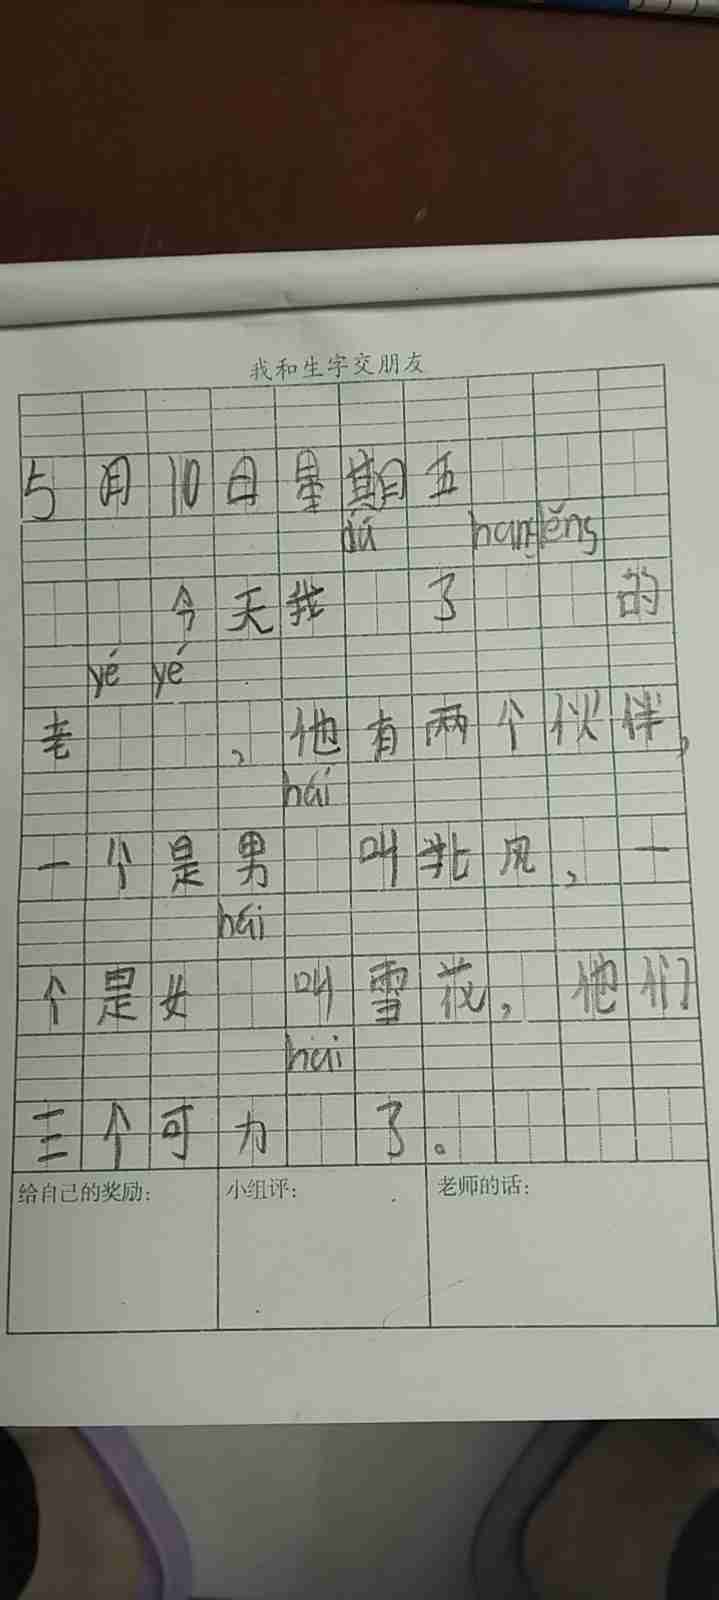 我和生字交朋友
5月10日星期五
dú hanlěng
今天我 了 的
yé yé
老 ，他有两个伙伴，
hái
一个是男 叫北风，一
hái
个是女 叫雪花，他们
hài
三个可力 了。
给自己的奖励： 小组评： 老师的话：